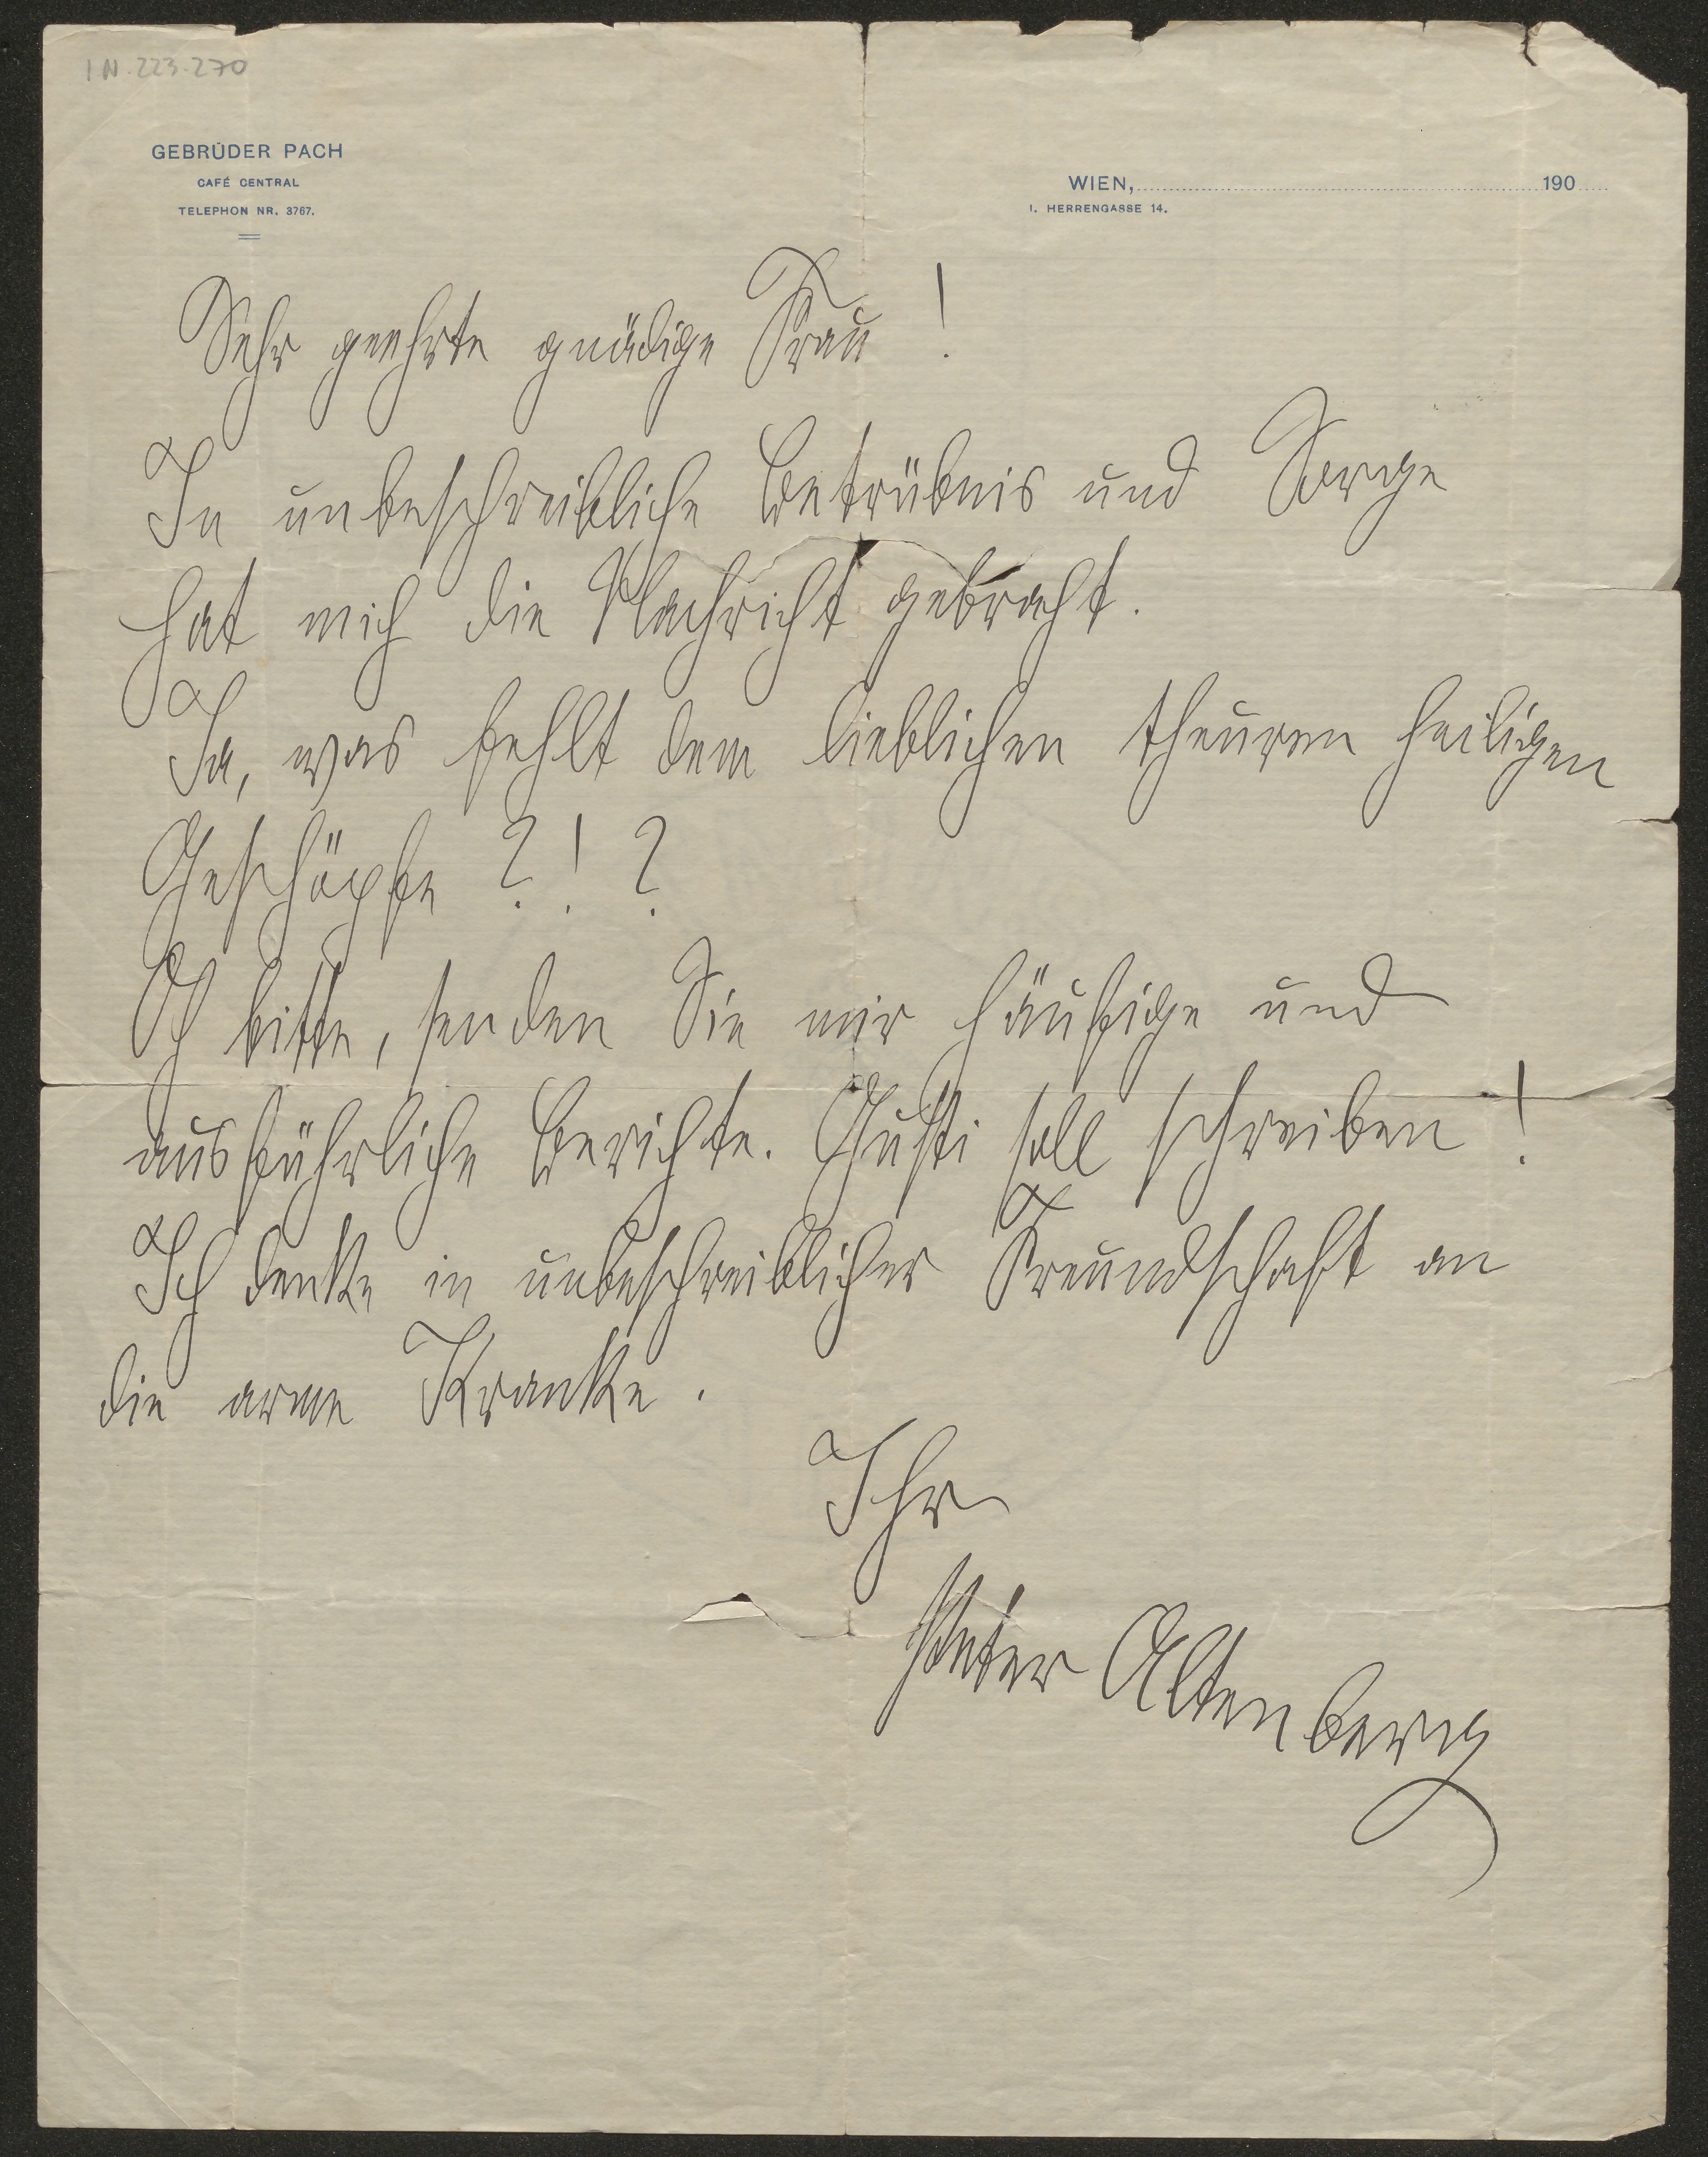 IN. 223.270
GEBRÜDER PACH
CAFÉ CENTRAL
TELEPHON NR. 3767.
WIEN, 190
I. HERRENGASSE 14.
Sehr geehrte gnädige Frau !
In unbeschreibliche Betrübnis und Sorge
hat mich die Nachricht gebracht.
Ja, was fehlt dem lieblichen theuren heiligen
Geschöpfe ? ! ?
Oh bitte, senden Sie mir häufige und
ausführliche Berichte. Gusti soll schreiben !
Ich denke in unbeschreiblicher Freundschaft an
die arme Kranke .
Ihr
Peter Altenberg